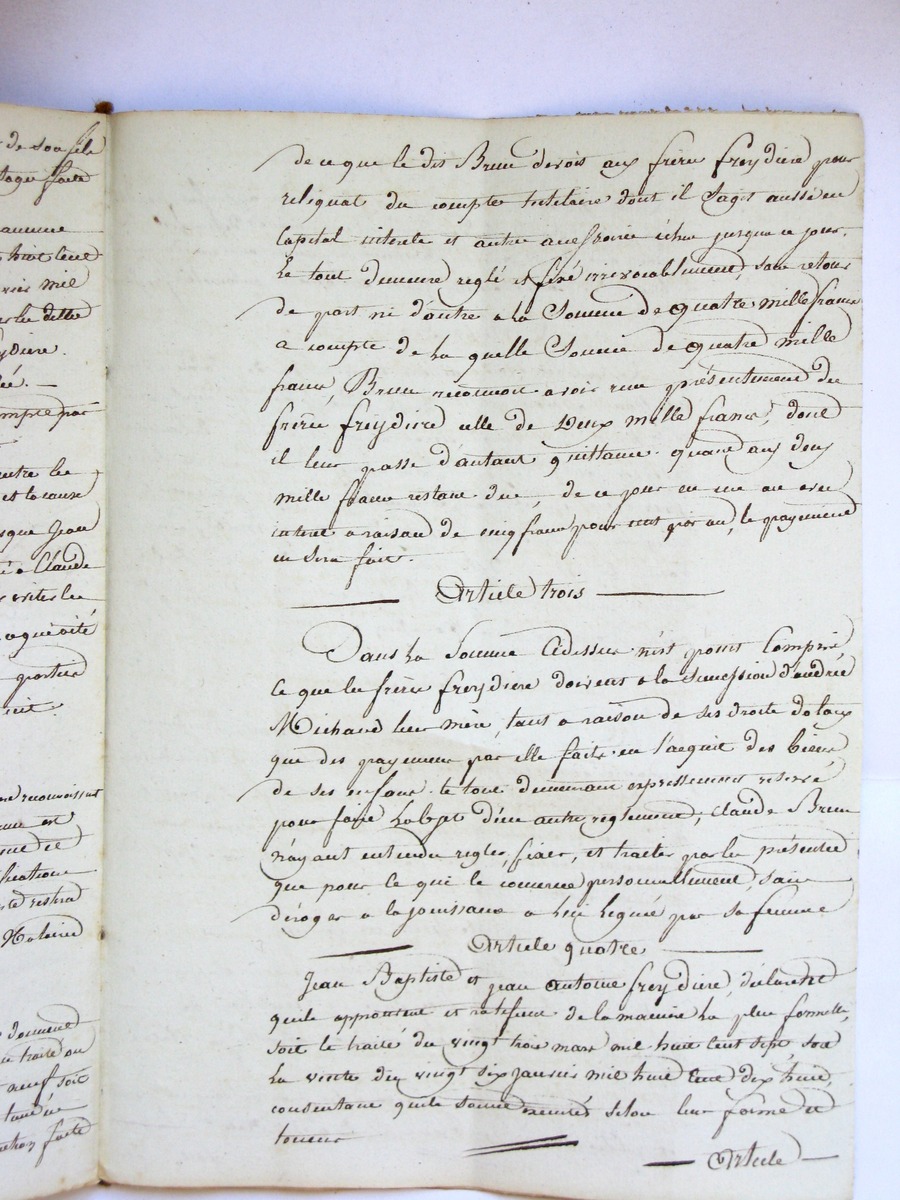 de son fils
faite
huit cent
mil
la dite
compte par
entre les
et la cause
Jean
à Claude
acquité
parties
reconnoissent
restera
Notaire
donnent
traité au
neuf soit
faite
de ce que le dit Brun devoit aux frères freydiere pour
reliquat du compte tutelaire dont il sagit aussi en
Capital interets et autres accessoires échus jusqua ce jour.
Le tout demeure reglé et fixé irrevocablement, sans retour
de part ni d'autre a la Somme de quatre mille francs
a compte de la quelle Somme de quatre mille
francs, Brun reconnoit avoir reçu présentement des
frères freydiere celle de Deux mille francs, dont
il leur passe d'autant quittance. quant aux deux
mille francs restant dus, de ce jour en un an avec
interet a raison de cinq francs pour cent par an, le payement
en sera fait.
Article trois
Dans la Somme Cidessus n'est point Comprise,
Ce que les frères freydiere doivent a la succession d'andrée
Michaud leur mère, tant a raison de ses droits dotaux
que des payements par elle faits en l'acquit des biens
de ses enfans. le tout demeurant expressement reservé
pour faire L'objet d'un autre reglement, Claude Brun
n'ayant entendu regler, fixer, et traiter par les présentes
que pour ce qui le concerne personnellement, sans
déroger a la jouissance a lui leguée par sa femme
Article quatre
Jean Baptiste et jean antoine freydiere, déclarent
quils approuvent et ratifient de la maniere la plus formelle,
soit le traité du vingt trois mars mil huit cent sept, soit
La vente du vingt six janvier mil huit cent dix huit,
consentant quils soient executés selon leur forme et
teneur
Article